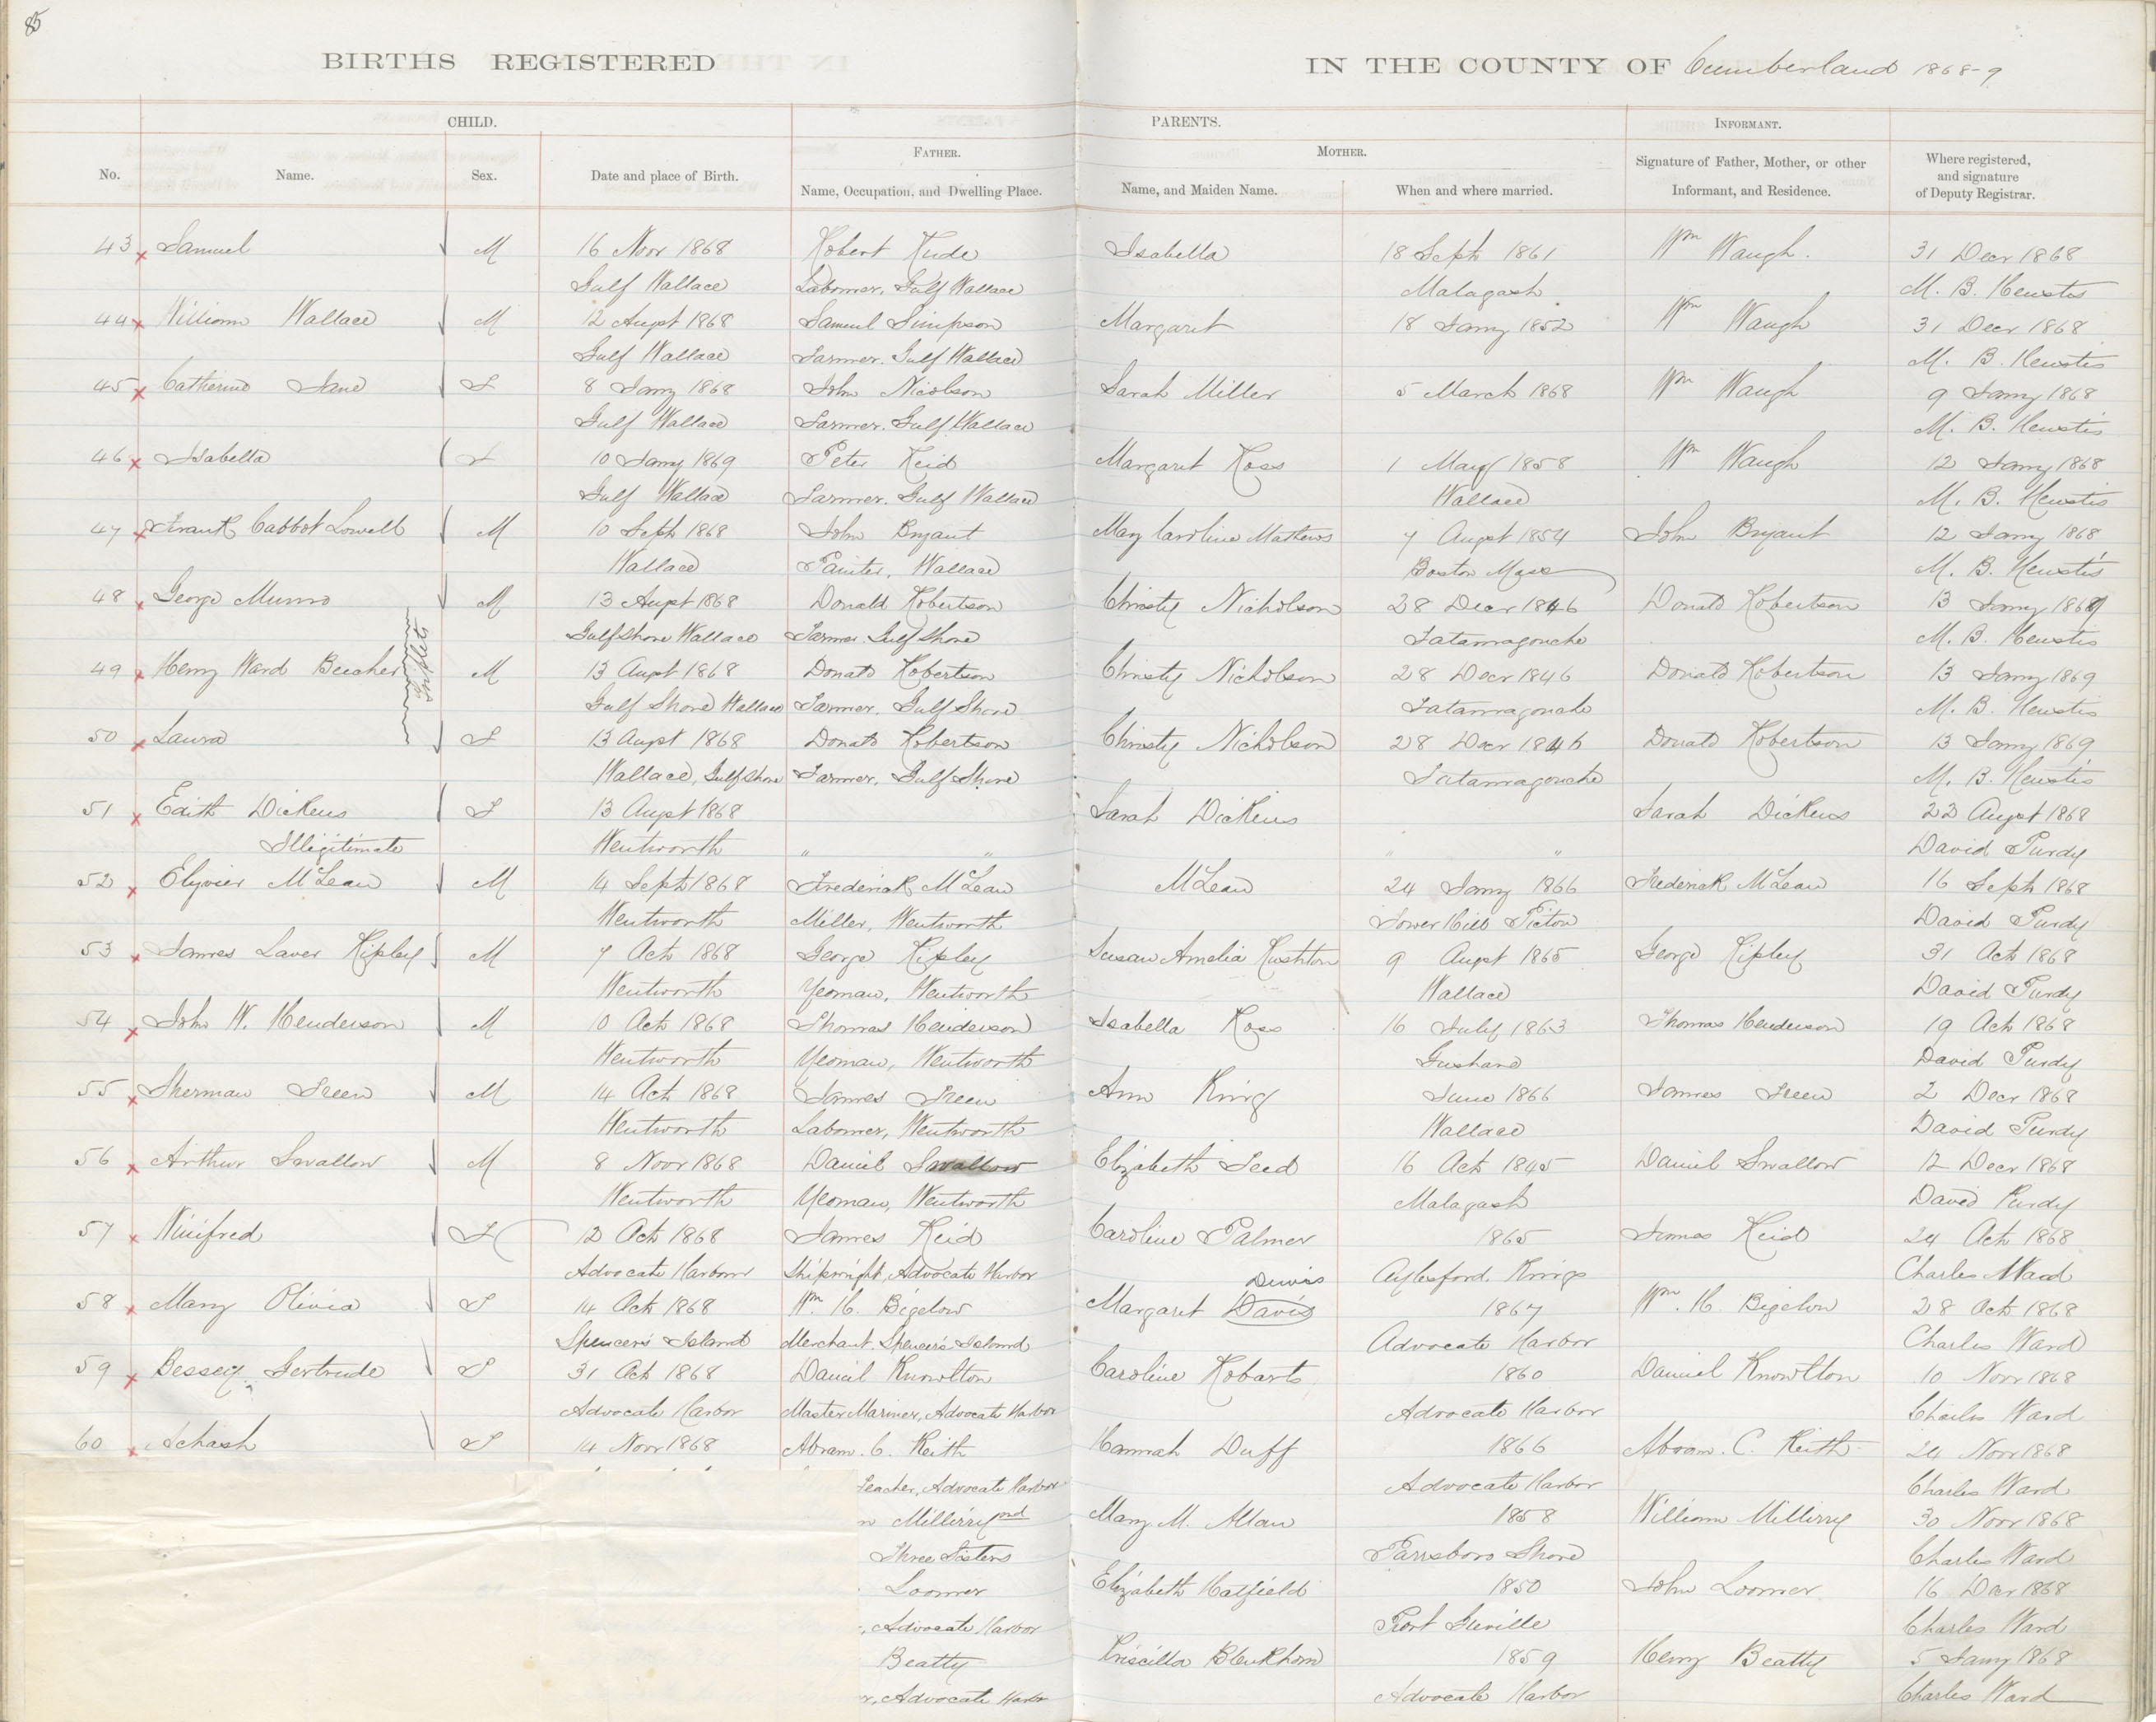 85
BIRTHS REGISTERED IN THE COUNTY OF Cumberland 1868-9
CHILD. PARENTS. INFORMANT.
FATHER. MOTHER.
No. Name. Sex. Date and place of Birth. Name, Occupation, and Dwelling Place. Name, and Maiden Name. When and where married. Signature of Father, Mother, or other Informant, and Residence. Where registered, and signature of Deputy Registrar.
43 Samuel M 16 Novr 1868 Robert Rude Isabella 18 Sept 1861 Wm Waugh. 31 Decr 1868
Gulf Wallace Labourer, Gulf Wallace Malagash M. B. Heustis
44 William Wallace M 12 Augst 1868 Samuel Simpson Margaret 18 Jany 1852 Wm Waugh 31 Decr 1868
Gulf Wallace Farmer. Gulf Wallace M. B. Heustis
45 Catherine Jane F 8 Jany 1868 John Nicolson Sarah Miller 5 March 1868 Wm Waugh 9 Jany 1868
Gulf Wallace Farmer. Gulf Wallace M. B. Heustis
46 Isabella F 10 Jany 1869 Peter Reid Margaret Ross 1 May 1858 Wm Waugh 12 Jany 1868
Gulf Wallace Farmer. Gulf Wallace Wallace M. B. Heustis
47 Frank Cabbot Lowell M 10 Sept 1868 John Bryant Mary Caroline Mathews 7 Augst 1854 John Bryant 12 Jany 1868
Wallace Painter, Wallace Boston Mass M. B. Heustis
48 George Munro M 13 Augst 1868 Donald Robertson Christy Nicholson 28 Decr 1846 Donald Robertson 13 Jany 1869
Gulf Shore Wallace Farmer Gulf Shore Tatamagouche M. B. Heustis
Triplets
49 Henry Ward Beecher M 13 Augst 1868 Donald Robertson Christy Nicholson 28 Decr 1846 Donald Robertson 13 Jany 1869
Gulf Shore Wallace Farmer. Gulf Shore Tatamagouche M. B. Heustis
50 Laura F 13 Augst 1868 Donald Robertson Christy Nicholson 28 Decr 1846 Donald Robertson 13 Jany 1869
Wallace, Gulf Shore Farmer, Gulf Shore Tatamagouche M. B. Heustis
51 Edith Dickens F 13 Augst 1868 Sarah Dickens Sarah Dickens 22 Augst 1868
Illigitimate Wentworth " " " " David Purdy
52 McLean M 14 Sept 1868 Frederick McLean McLean 24 Jany 1866 Frederick McLean 16 Sept 1868
Wentworth Miller, Wentworth Hill Picton David Purdy
53 James Laver Ripley M 7 Oct 1868 George Ripley Susan Amelia Rushton 9 Augst 1865 George Ripley 31 Oct 1868
Wentworth Yeoman, Wentworth Wallace David Purdy
54 John W. Henderson M 10 Oct 1868 Thomas Henderson Isabella Ross 16 July 1863 Thomas Henderson 19 Oct 1868
Wentworth Yeoman, Wentworth David Purdy
55 Sherman Treen M 14 Oct 1868 James Treen Ann King June 1866 James Treen 2 Decr 1868
Wentworth Labourer, Wentworth Wallace David Purdy
56 Arthur Swallow M 8 Novr 1868 Daniel Swallow Elizabeth Teed 16 Oct 1845 Daniel Swallow 12 Decr 1868
Wentworth Yeoman, Wentworth Malagash David Purdy
57 Winifred F 12 Oct 1868 James Reid Caroline Palmer 1865 James Reid 24 Oct 1868
Advocate Harbour Shipwright, Advocate Harbor Aylesford, Kings Charles Ward
58 Mary Olivia F 14 Oct 1868 Wm. H. Bigelow Margaret Davis Dewis 1867 Wm. H Bigelow 28 Oct 1868
Spencer's Island Merchant Spencer's Island Advocate Harbor Charles Ward
59 Bessey Gertrude F 31 Oct 1868 Daniel Knowlton Caroline Robarts 1860 Daniel Knowlton 10 Novr 1868
Advocate Harbor Master Mariner, Advocate Harbor Advocate Harbor Charles Ward
60 Achash F 14 Novr 1868 Abram. C. Keith Hannah Duff 1866 Abram. C. Keith 24 Novr 1868
Teacher, Advocate Harbor Advocate Harbor Charles Ward
Millirry Mary M. Allan 1858 William Millirry 30 Novr 1868
Three Sisters Parrsboro Shore Charles Ward
Loomer Elizabeth Hatfield 1850 John Loomer 16 Decr 1868
, Advocate Harbor Port Greville Charles Ward
Beatty Priscilla Blenkhorn 1859 Henry Beatty 5 Jany 1868
r, Advocate Harbor Advocate Harbor Charles Ward